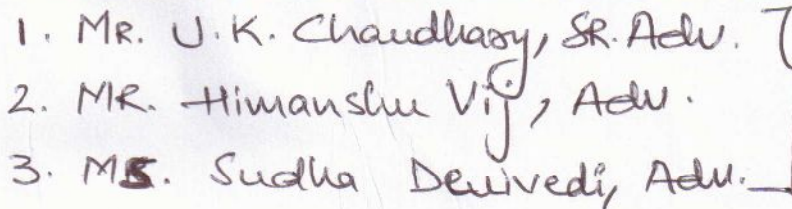 1. MR. U.K. Chaudhary, SR. Adv.
2. MR. Himanshu Vij, Adv.
3. MS. Sudha Dewivedi, Adv.